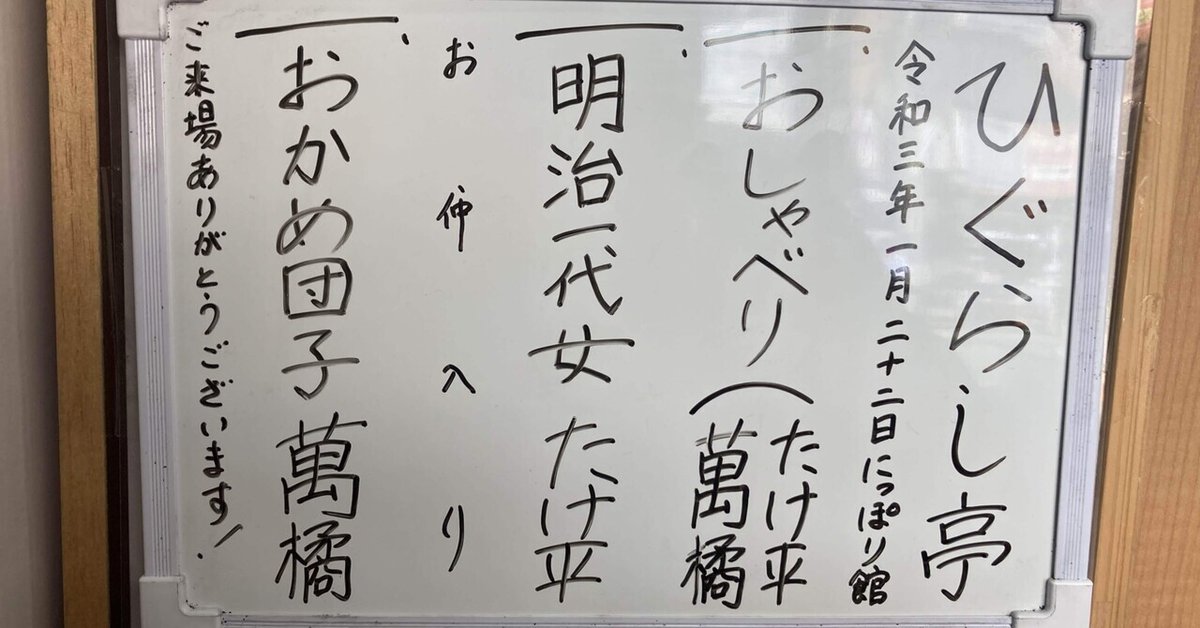 ひぐらし亭
令和三年一月二十二日にっぽり館
一、おしゃべり(たけ平
萬橘
一、明治一代女 たけ平
お仲入り
一、おかめ団子 萬橘
ご来場ありがとうございます!